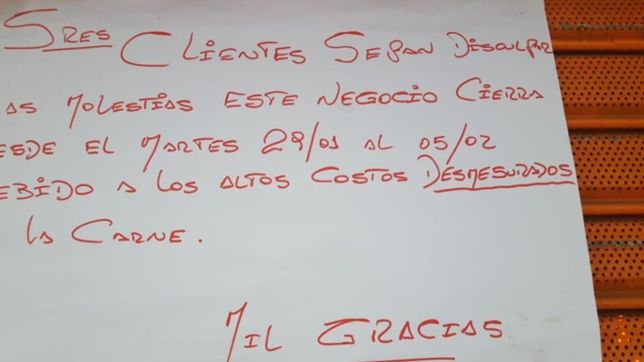 SRES CLIENTES SEPAN DISCULPAR
AS MOLESTIAS ESTE NEGOCIO CIERRA
ESDE EL MARTES 29/01 AL 05/02
EBIDO A LOS ALTOS COSTOS DESMESURADOS
LA CARNE.
MIL GRACIAS